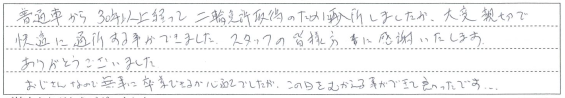 普通車から30年以上経って二輪免許取得のため再入所しましたが、大変親切で
快適に通所する事ができました。スタッフの皆様方本当に感謝いたします。
ありがとうございました
おじさんなので無事に卒業できるか心配でしたが、この日をむかえる事ができて良かったです…